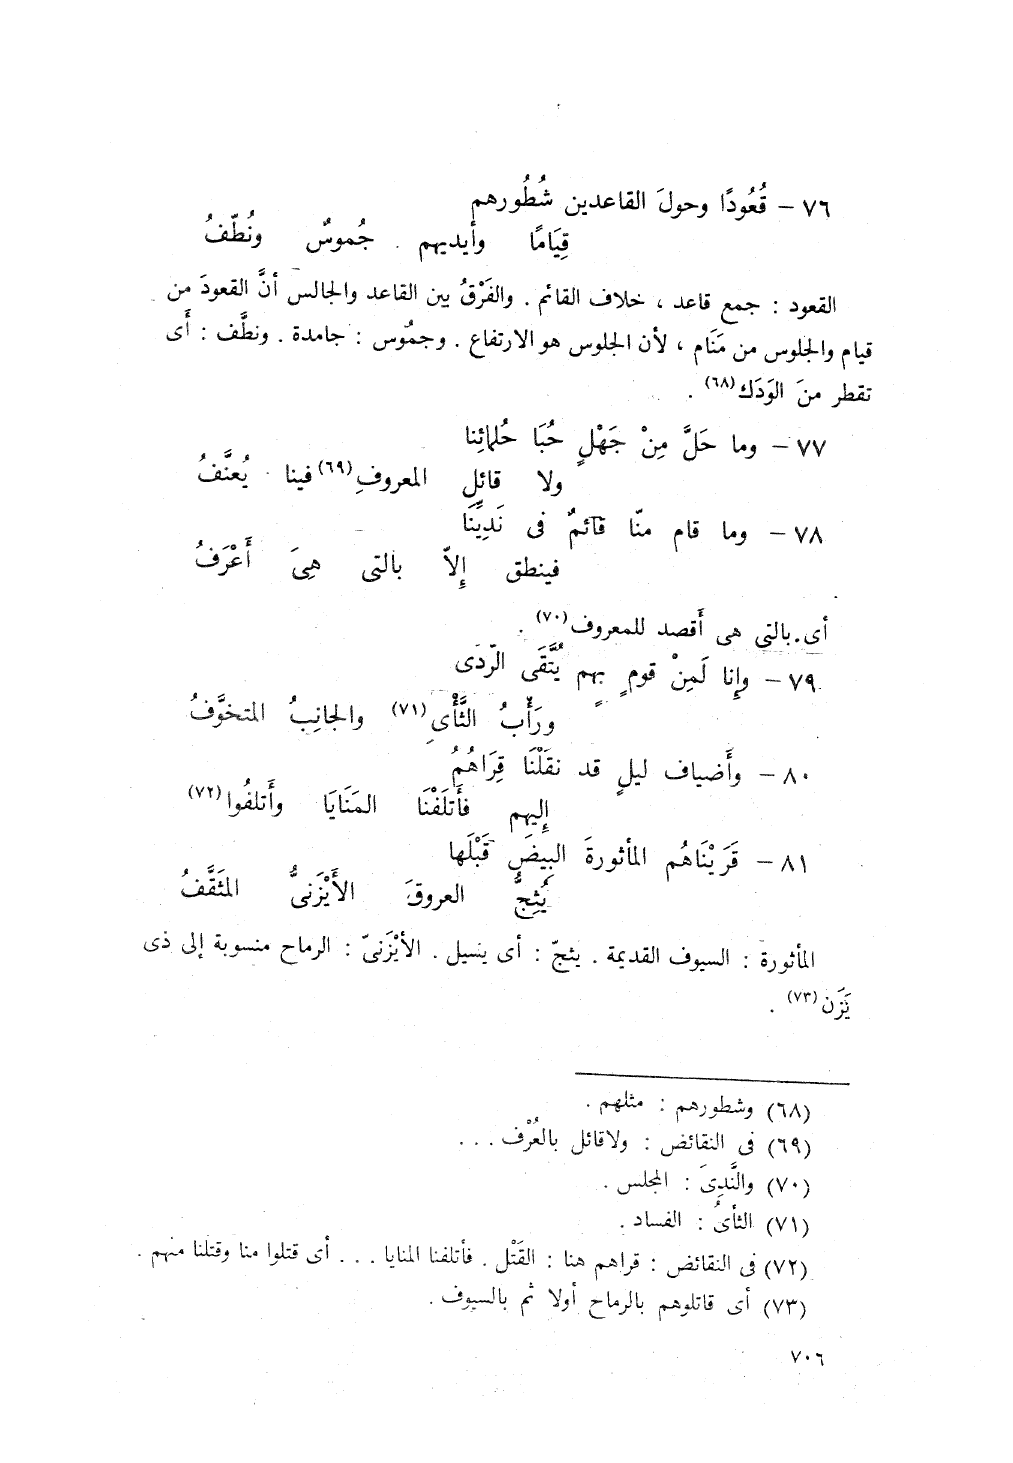 ٧٦ – قُعُودًا وحولَ القاعدين شُطُورهم
قِيَامًا وأيديهم جُموسٌ ونُطّفُ
القعود : جمع قاعد ، خلاف القائم . والفَرْقُ بين القاعد والجالس أنَّ القعودَ من
قيام والجلوس من مَنَام ، لأن الجلوس هو الارتفاع . وجمُوس : جامدة . ونطَّف : أَى
تقطر منَ الوَدَك(٦٨) .
٧٧ – وما حَلَّ مِنْ جَهْلٍ حُبَا حُلمائِنا
ولا قائلِ المعروفِ(٦٩) فينا يُعنَّفُ
٧٨ – وما قام منّا قائمٌ فى نَدِيِّنَا
فينطق إِلاّ بالتى هِىَ أَعْرَفُ
أى بالتى هى أَقصد للمعروف(٧٠) .
٧٩ – وإِنا لَمِنْ قومٍ بهم يُتَّقَى الرّدَى
ورَأْبُ الثَّأْىِ(٧١) والجانِبُ المتخوَّفُ
٨٠ – وأَضياف ليلٍ قد نقَلْنَا قِرَاهُمُ
إِليهم فأَتلَفْنَا المَنَايَا وأَتلفُوا(٧٢)
٨١ – قَرَيْنَاهُم المأثورةَ البِيضَ قَبْلَها
يُثِجُّ العروقَ الأَيْزَنىُّ المثَقَّفُ
المأثورة : السيوف القديمة . يثجّ : أى يسيل . الأيْزَنىّ : الرماح منسوبة إلى ذى
يَزَن(٧٣) .
(٦٨) وشطورهم : مثلهم .
(٦٩) فى النقائض : ولاقائل بالعُرْف . . .
(٧٠) والنَّدِىَ : المجلس .
(٧١) الثأىُ : الفساد .
(٧٢) فى النقائض : قراهم هنا : القَتْل . فأتلفنا المنايا . . . أى قتلوا منا وقتلنا منهم .
(٧٣) أى قاتلوهم بالرماح أولا ثم بالسيوف .
٧٠٦